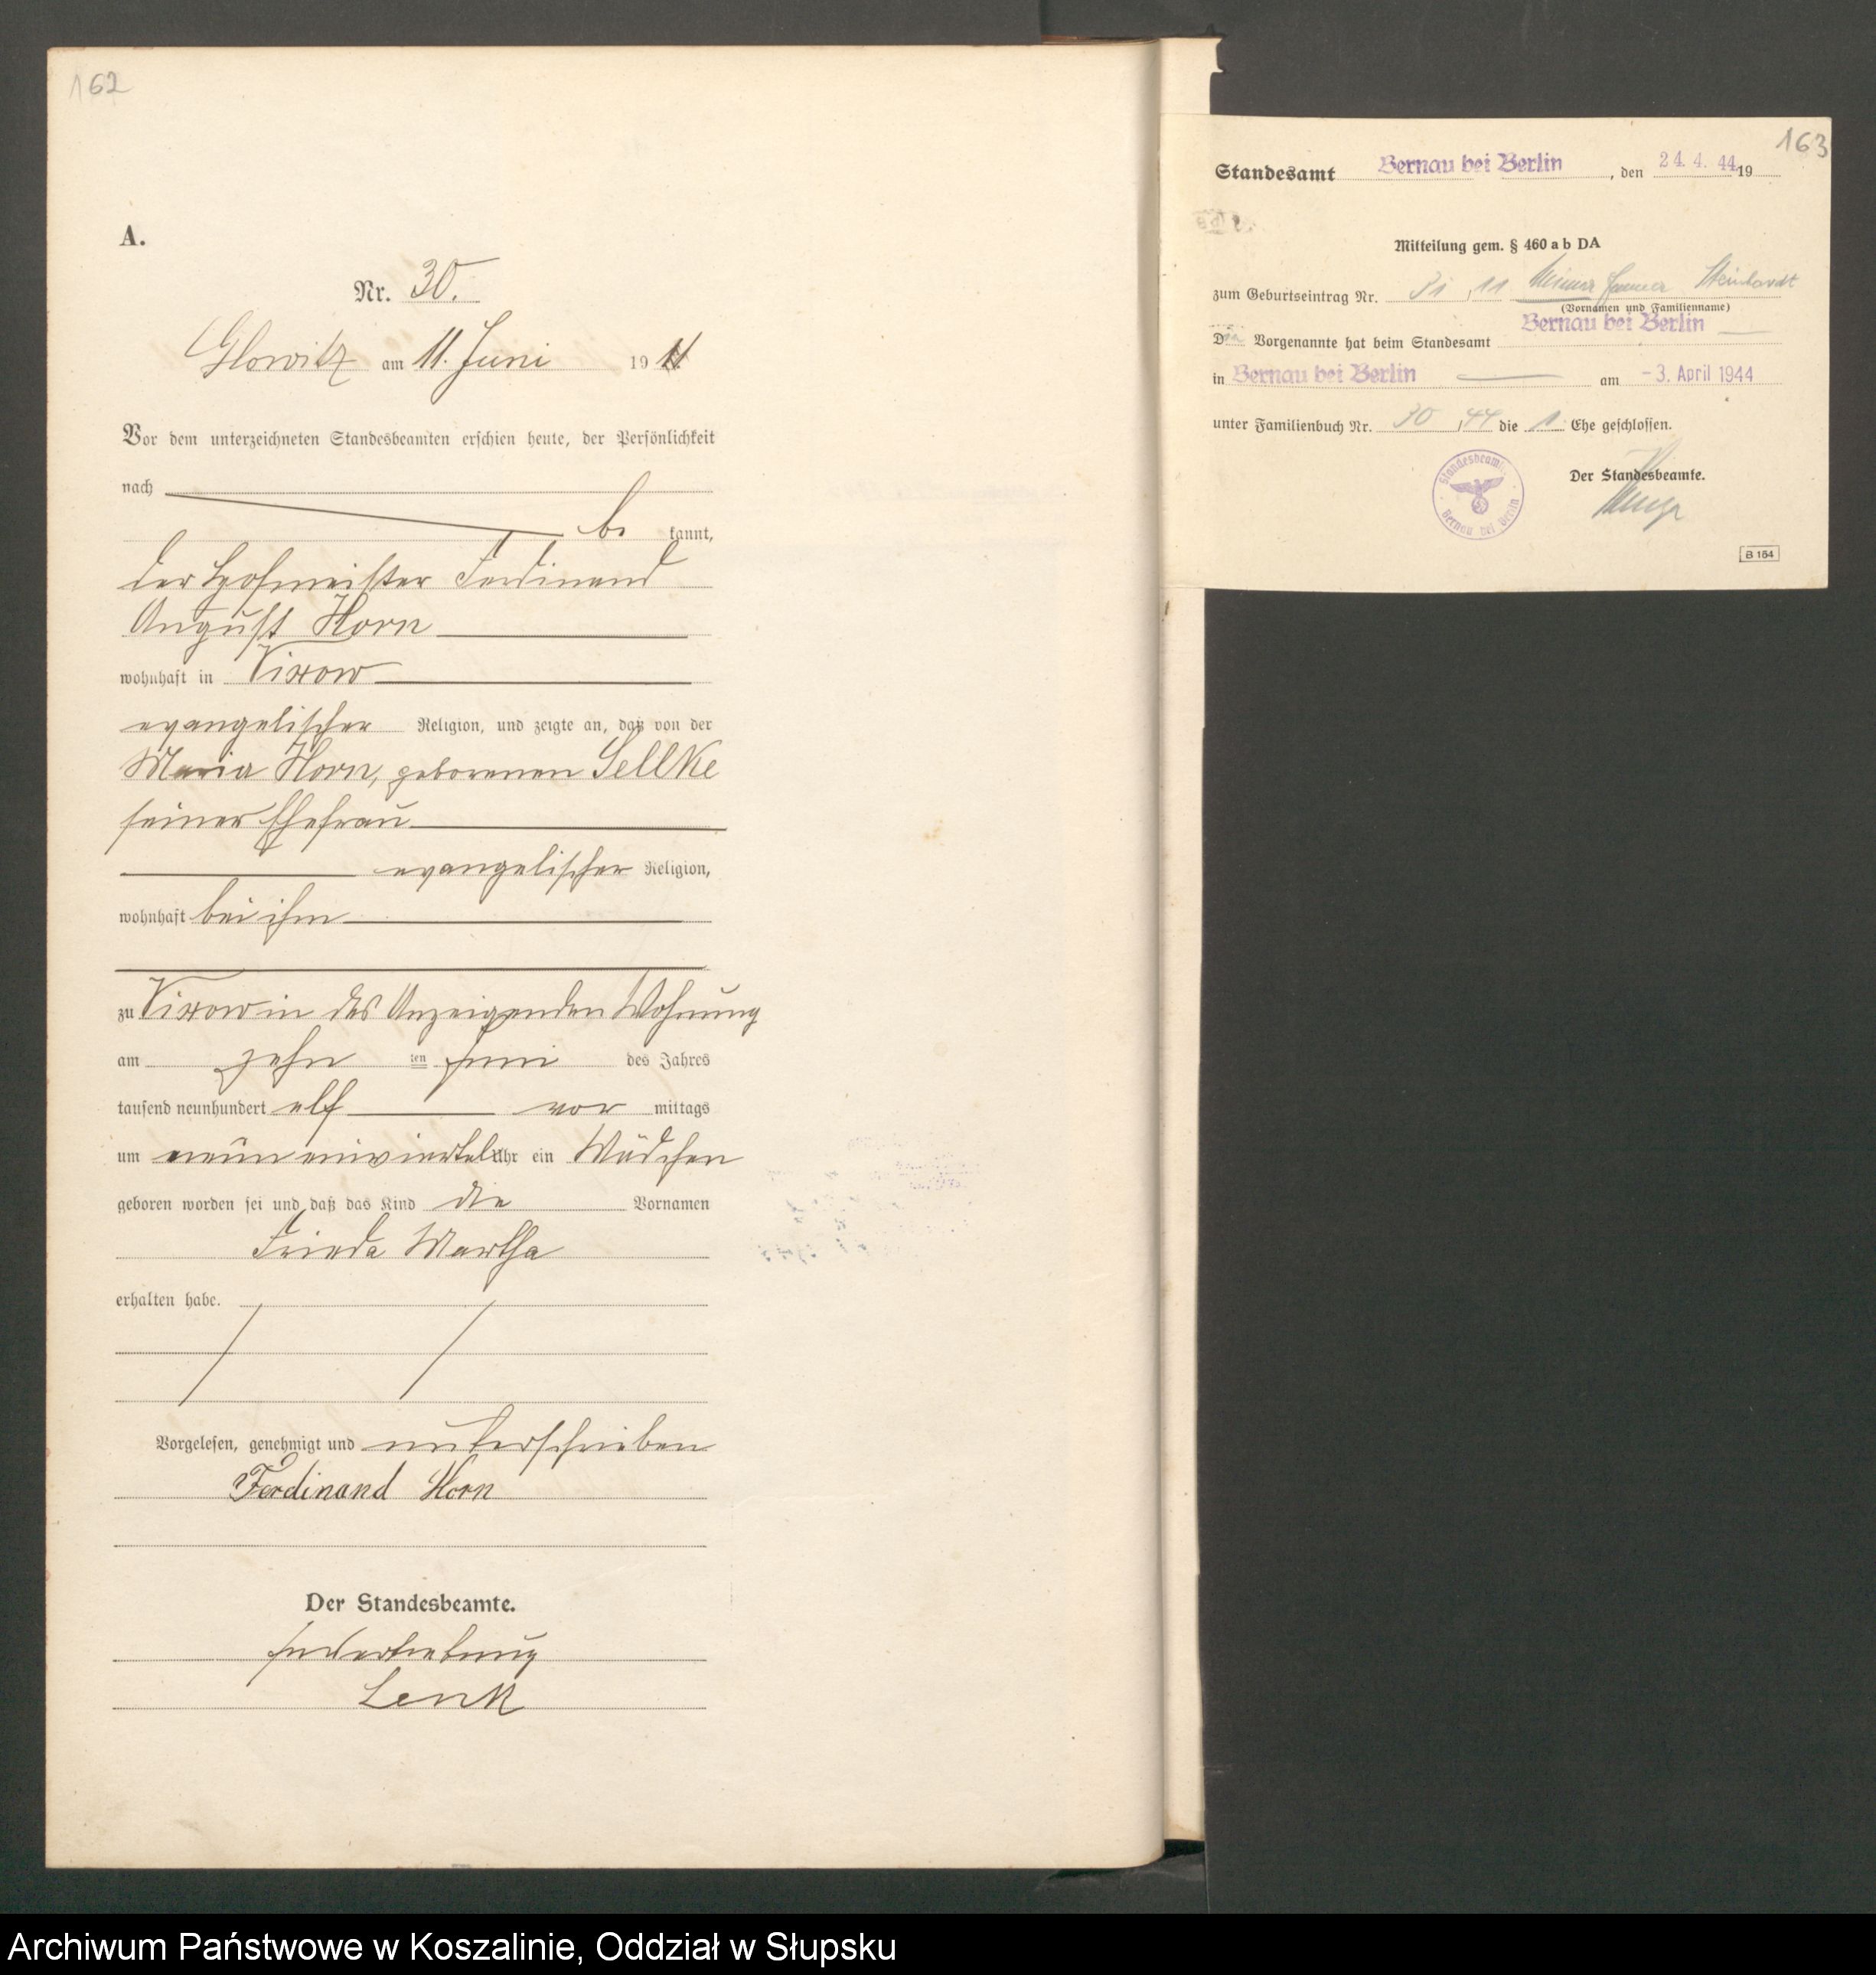 162
A.
Nr. 30.
Glowitz am 11. Juni 1911
Vor dem unterzeichneten Standesbeamten erschien heute, der Persönlichkeit
nach
be kannt,
der Hofmeister Ferdinand
August Horn
wohnhaft in Vixow
evangelischer Religion, und zeigte an, daß von der
Maria Horn, geborenen Sellke
seiner Ehefrau
evangelischer Religion,
wohnhaft bei ihm
zu Vixow in des Anzeigenden Wohnung
am zehn ten Juni des Jahres
tausend neunhundert elf vor mittags
um neun einviertel Uhr ein Mädchen
geboren worden sei und daß das Kind die Vornamen
Frieda Martha
erhalten habe.
Vorgelesen, genehmigt und unterschrieben
Ferdinand Horn
Der Standesbeamte.
In Vertretung
Lenk
163
Standesamt Bernau bei Berlin, den 24. 4. 44 19
Mitteilung gem. § 460 a b DA
zum Geburtseintrag Nr. 31, 11 Steinhardt
(Vornamen und Familienname)
Die Vorgenannte hat beim Standesamt Bernau bei Berlin
in Bernau bei Berlin am -3. April 1944
unter Familienbuch Nr. 30, 44 die 1. Ehe geschlossen.
Der Standesbeamte.
Standesbeamte
Bernau bei Berlin
B 154
Archiwum Państwowe w Koszalinie, Oddział w Słupsku